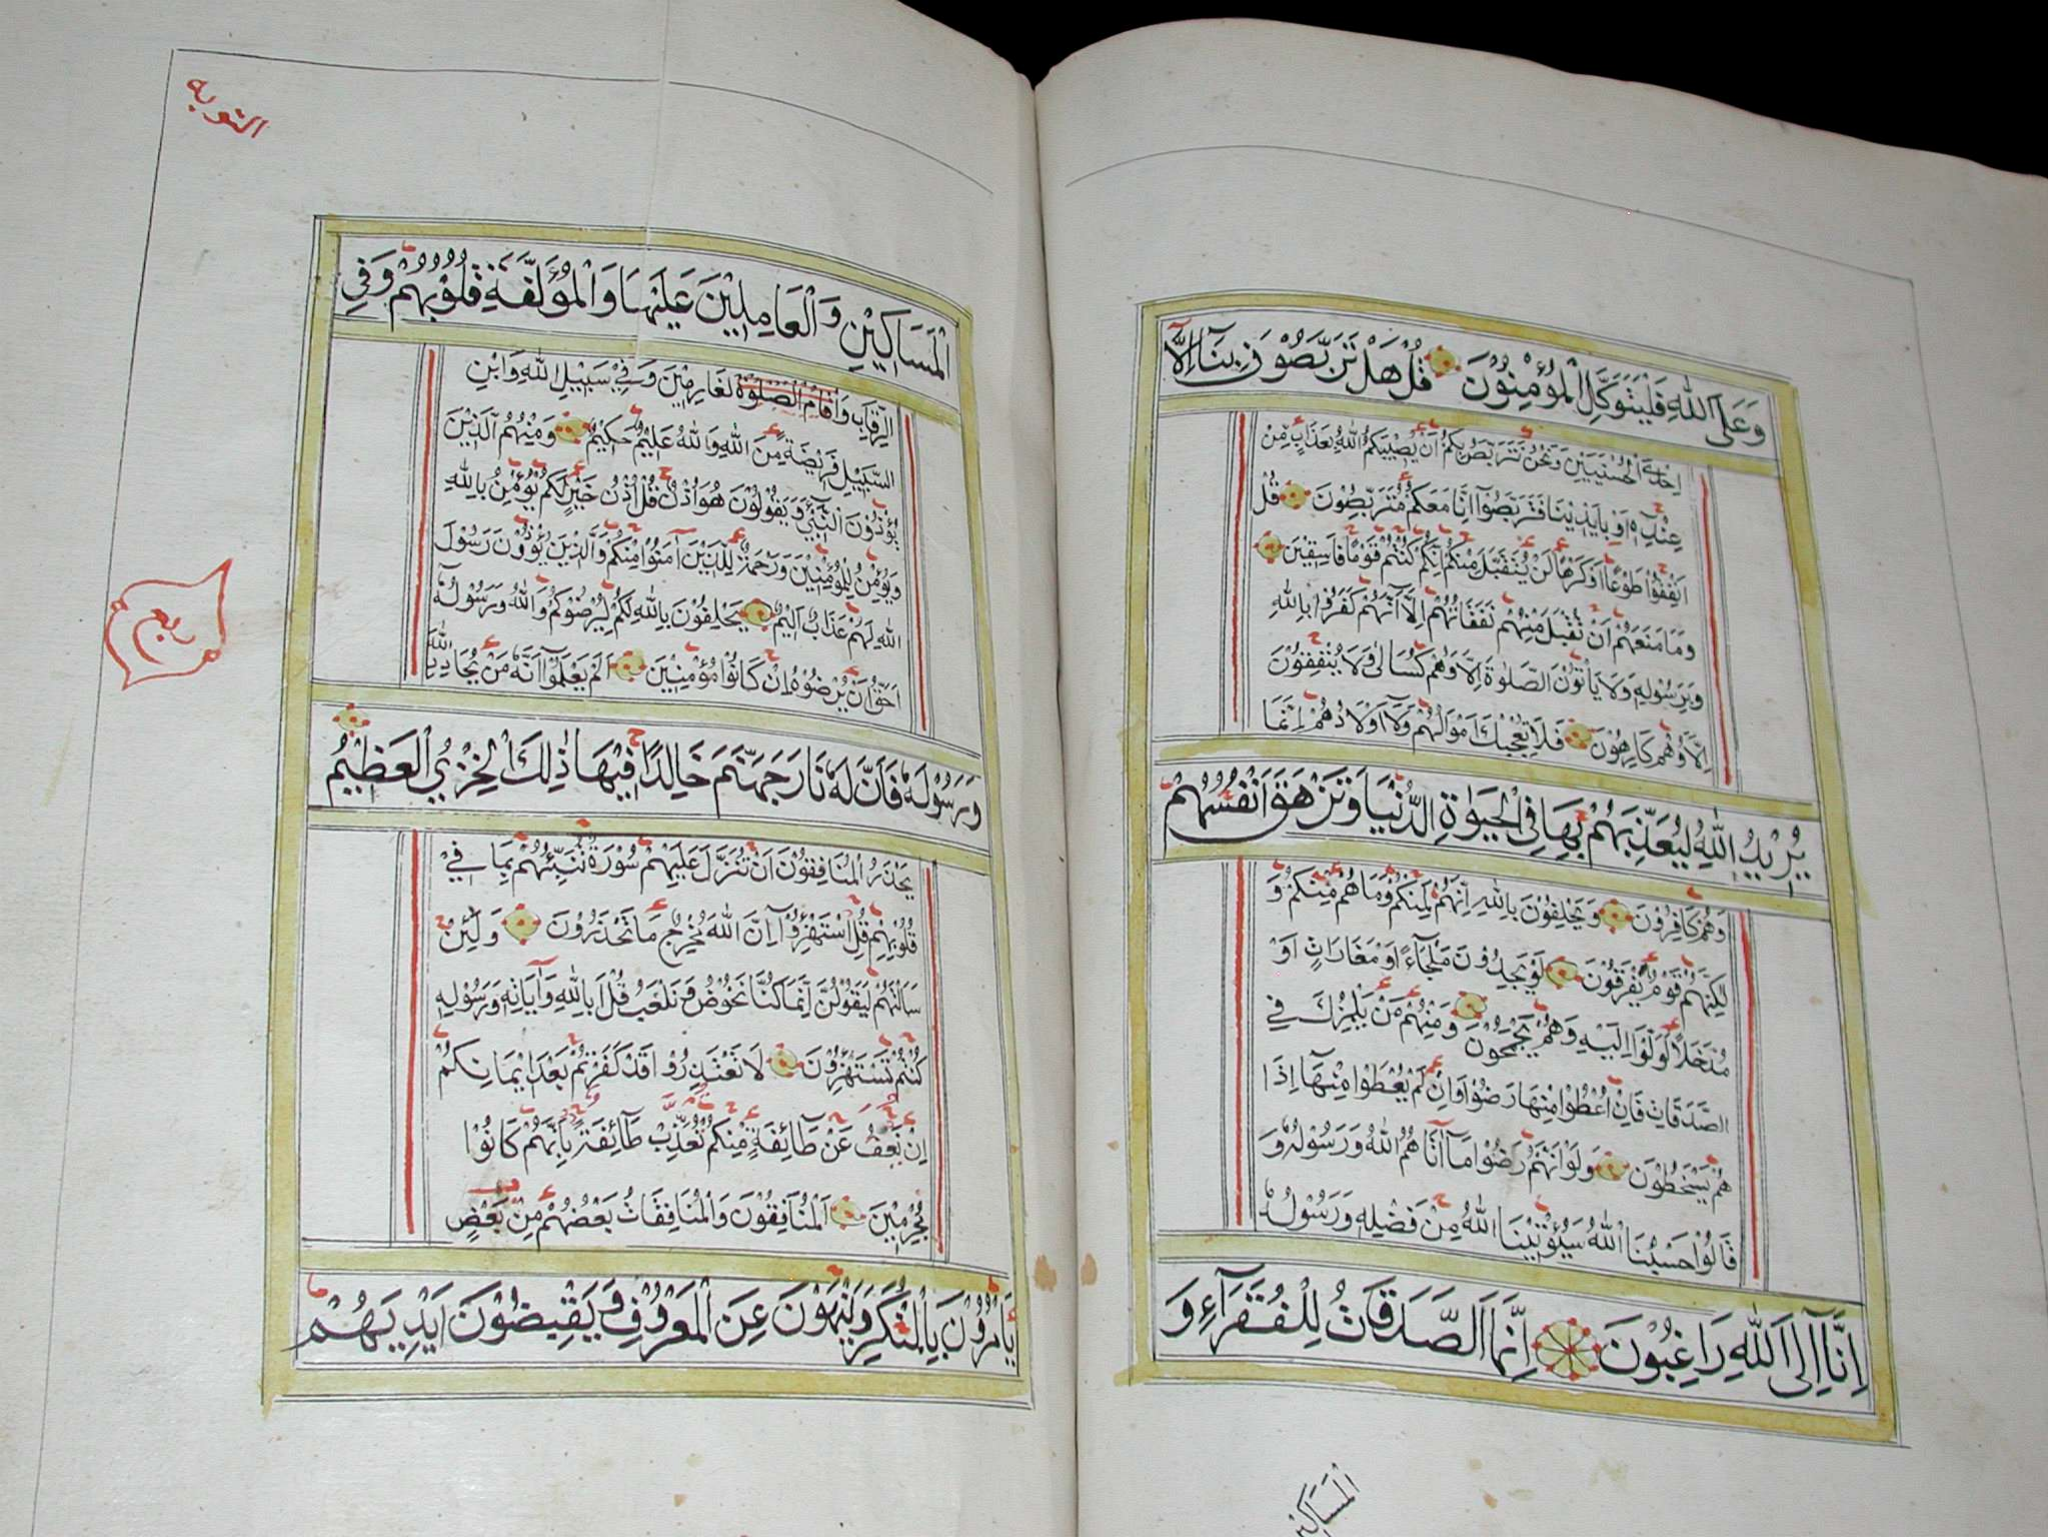 وَعَلَى اللّٰهِ فَلْيَتَوَكَّلِ الْمُؤْمِنُوْنَ قُلْ هَلْ تَرَبَّصُوْنَ بِنَا اِلَّا
اِحْدَى الْحُسْنَيَيْنِ وَنَحْنُ نَتَرَبَّصُ بِكُمْ اَنْ يُصِيْبَكُمُ اللّٰهُ بِعَذَابٍ مِنْ
عِنْدِهِ اَوْ بِاَيْدِيْنَا فَتَرَبَّصُوْا اِنَّا مَعَكُمْ مُتَرَبِّصُوْنَ قُلْ
اَنْفِقُوْا طَوْعًا اَوْ كَرْهًا لَنْ يُتَقَبَّلَ مِنْكُمْ اِنَّكُمْ كُنْتُمْ قَوْمًا فَاسِقِيْنَ
وَمَا مَنَعَهُمْ اَنْ تُقْبَلَ مِنْهُمْ نَفَقَاتُهُمْ اِلَّا اَنَّهُمْ كَفَرُوْا بِاللّٰهِ
وَبِرَسُوْلِهِ وَلَا يَأْتُوْنَ الصَّلٰوةَ اِلَّا وَهُمْ كُسَالٰى وَلَا يُنْفِقُوْنَ
اِلَّا وَهُمْ كَارِهُوْنَ فَلَا تُعْجِبْكَ اَمْوَالُهُمْ وَلَا اَوْلَادُهُمْ اِنَّمَا
يُرِيْدُ اللّٰهُ لِيُعَذِّبَهُمْ بِهَا فِي الْحَيٰوةِ الدُّنْيَا وَتَزْهَقَ اَنْفُسُهُمْ
وَهُمْ كَافِرُوْنَ وَيَحْلِفُوْنَ بِاللّٰهِ اِنَّهُمْ لَمِنْكُمْ وَمَا هُمْ مِنْكُمْ وَ
لٰكِنَّهُمْ قَوْمٌ يَفْرَقُوْنَ لَوْ يَجِدُوْنَ مَلْجَاءً اَوْ مَغَارَاتٍ اَوْ
مُدَّخَلًا لَوَلَّوْا اِلَيْهِ وَهُمْ يَجْمَحُوْنَ وَمِنْهُمْ مَنْ يَلْمِزُكَ فِي
الصَّدَقَاتِ فَاِنْ اُعْطُوْا مِنْهَا رَضُوْا وَاِنْ لَمْ يُعْطَوْا مِنْهَا اِذَا
هُمْ يَسْخَطُوْنَ وَلَوْ اَنَّهُمْ رَضُوْا مَا اٰتَاهُمُ اللّٰهُ وَرَسُوْلُهُ وَ
قَالُوْا حَسْبُنَا اللّٰهُ سَيُؤْتِيْنَا اللّٰهُ مِنْ فَضْلِهِ وَرَسُوْلُهُ
اِنَّا اِلَى اللّٰهِ رَاغِبُوْنَ اِنَّمَا الصَّدَقَاتُ لِلْفُقَرَاءِ وَ
الْمَسَاكِيْنِ
التوبه
الْمَسَاكِيْنِ وَالْعَامِلِيْنَ عَلَيْهَا وَالْمُؤَلَّفَةِ قُلُوْبُهُمْ وَفِي
الرِّقَابِ وَاَقَامَ الصَّلٰوةَ لْغَارِمِيْنَ وَفِيْ سَبِيْلِ اللّٰهِ وَابْنِ
السَّبِيْلِ فَرِيْضَةً مِنَ اللّٰهِ وَاللّٰهُ عَلِيْمٌ حَكِيْمٌ وَمِنْهُمُ الَّذِيْنَ
يُؤْذُوْنَ النَّبِيَّ وَيَقُوْلُوْنَ هُوَ اُذُنٌ قُلْ اُذُنُ خَيْرٍ لَكُمْ يُؤْمِنُ بِاللّٰهِ
وَيُؤْمِنُ لِلْمُؤْمِنِيْنَ وَرَحْمَةٌ لِلَّذِيْنَ اٰمَنُوْا مِنْكُمْ وَالَّذِيْنَ يُؤْذُوْنَ رَسُوْلَ
اللّٰهِ لَهُمْ عَذَابٌ اَلِيْمٌ يَحْلِفُوْنَ بِاللّٰهِ لَكُمْ لِيُرْضُوْكُمْ وَاللّٰهُ وَرَسُوْلُهُ
اَحَقُّ اَنْ يُرْضُوْهُ اِنْ كَانُوْا مُؤْمِنِيْنَ اَلَمْ يَعْلَمُوْا اَنَّهُ مَنْ يُحَادِدِ اللّٰهَ
وَرَسُوْلَهُ فَاَنَّ لَهُ نَارَ جَهَنَّمَ خَالِدًا فِيْهَا ذٰلِكَ الْخِزْيُ الْعَظِيْمُ
يَحْذَرُ الْمُنَافِقُوْنَ اَنْ تُنَزَّلَ عَلَيْهِمْ سُوْرَةٌ تُنَبِّئُهُمْ بِمَا فِيْ
قُلُوْبِهِمْ قُلِ اسْتَهْزِؤُوْا اِنَّ اللّٰهَ مُخْرِجٌ مَا تَحْذَرُوْنَ وَلَئِنْ
سَاَلْتَهُمْ لَيَقُوْلُنَّ اِنَّمَا كُنَّا نَخُوْضُ وَنَلْعَبُ قُلْ اَبِاللّٰهِ وَاٰيَاتِهِ وَرَسُوْلِهِ
كُنْتُمْ تَسْتَهْزِؤُوْنَ لَا تَعْتَذِرُوْا قَدْ كَفَرْتُمْ بَعْدَ اِيْمَانِكُمْ
اِنْ نَعْفُ عَنْ طَائِفَةٍ مِنْكُمْ نُعَذِّبْ طَائِفَةً بِاَنَّهُمْ كَانُوْا
مُجْرِمِيْنَ اَلْمُنَافِقُوْنَ وَالْمُنَافِقَاتُ بَعْضُهُمْ مِنْ بَعْضٍ
يَأْمُرُوْنَ بِالْمُنْكَرِ وَيَنْهَوْنَ عَنِ الْمَعْرُوْفِ وَيَقْبِضُوْنَ اَيْدِيَهُمْ
ربع